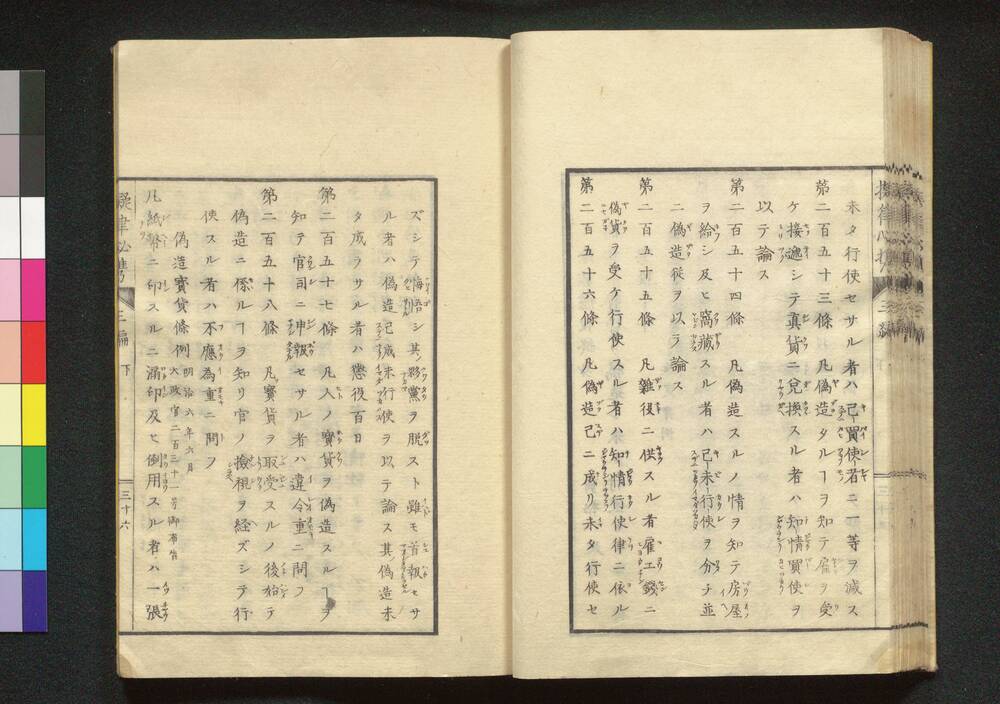 未タ行使セサル者ハ已買使者ニ一等ヲ減ス
第二百五十三條　凡偽造タルヿヲ知テ雇ヲ受
ケ接遞シテ真貨ニ兌換スル者ハ知情買使ヲ
以テ論ス
第二百五十四條　凡偽造スルノ情ヲ知テ房屋
ヲ給シ及ヒ窩藏スル者ハ已未行使ヲ分チ並
ニ偽造從ヲ以テ論ス
第二百五十五條　凡雜役ニ供スル者雇工錢ニ
偽貨ヲ受ケ行使スル者ハ知情行使律ニ依ル
第二百五十六條　凡偽造已ニ成リ未タ行使セ
ズシテ悔悟シ其夥黨ヲ脱スト雖モ首報セサ
ル者ハ偽造已成未行使ヲ以テ論ス其偽造未
タ成ラサル者ハ懲役百日
第二百五十七條　凡人ノ寳貨ヲ偽造スルヿヲ
知テ官司ニ申報セサル者ハ違令重ニ問フ
第二百五十八條　凡寳貨ヲ取受スルノ後始テ
偽造ニ係ルヿヲ知リ官ノ撿視ヲ経ズシテ行
使スル者ハ不應為重ニ問フ
偽造寳貨條例 明治六年六月 大政官二百三十一号御布告
凡紙幣ニ印スルニ漏印及ヒ倒用スル者ハ一張
三編　下
三十六